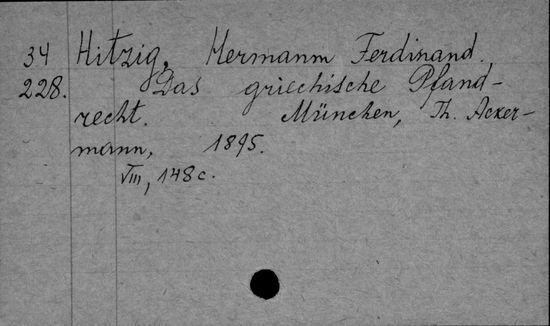 34 Hitzig, Hermann Ferdinand.
228. Das griechische Pfand-
recht. München, Th. Acker-
mann, 1895.
VIII, 148 c.